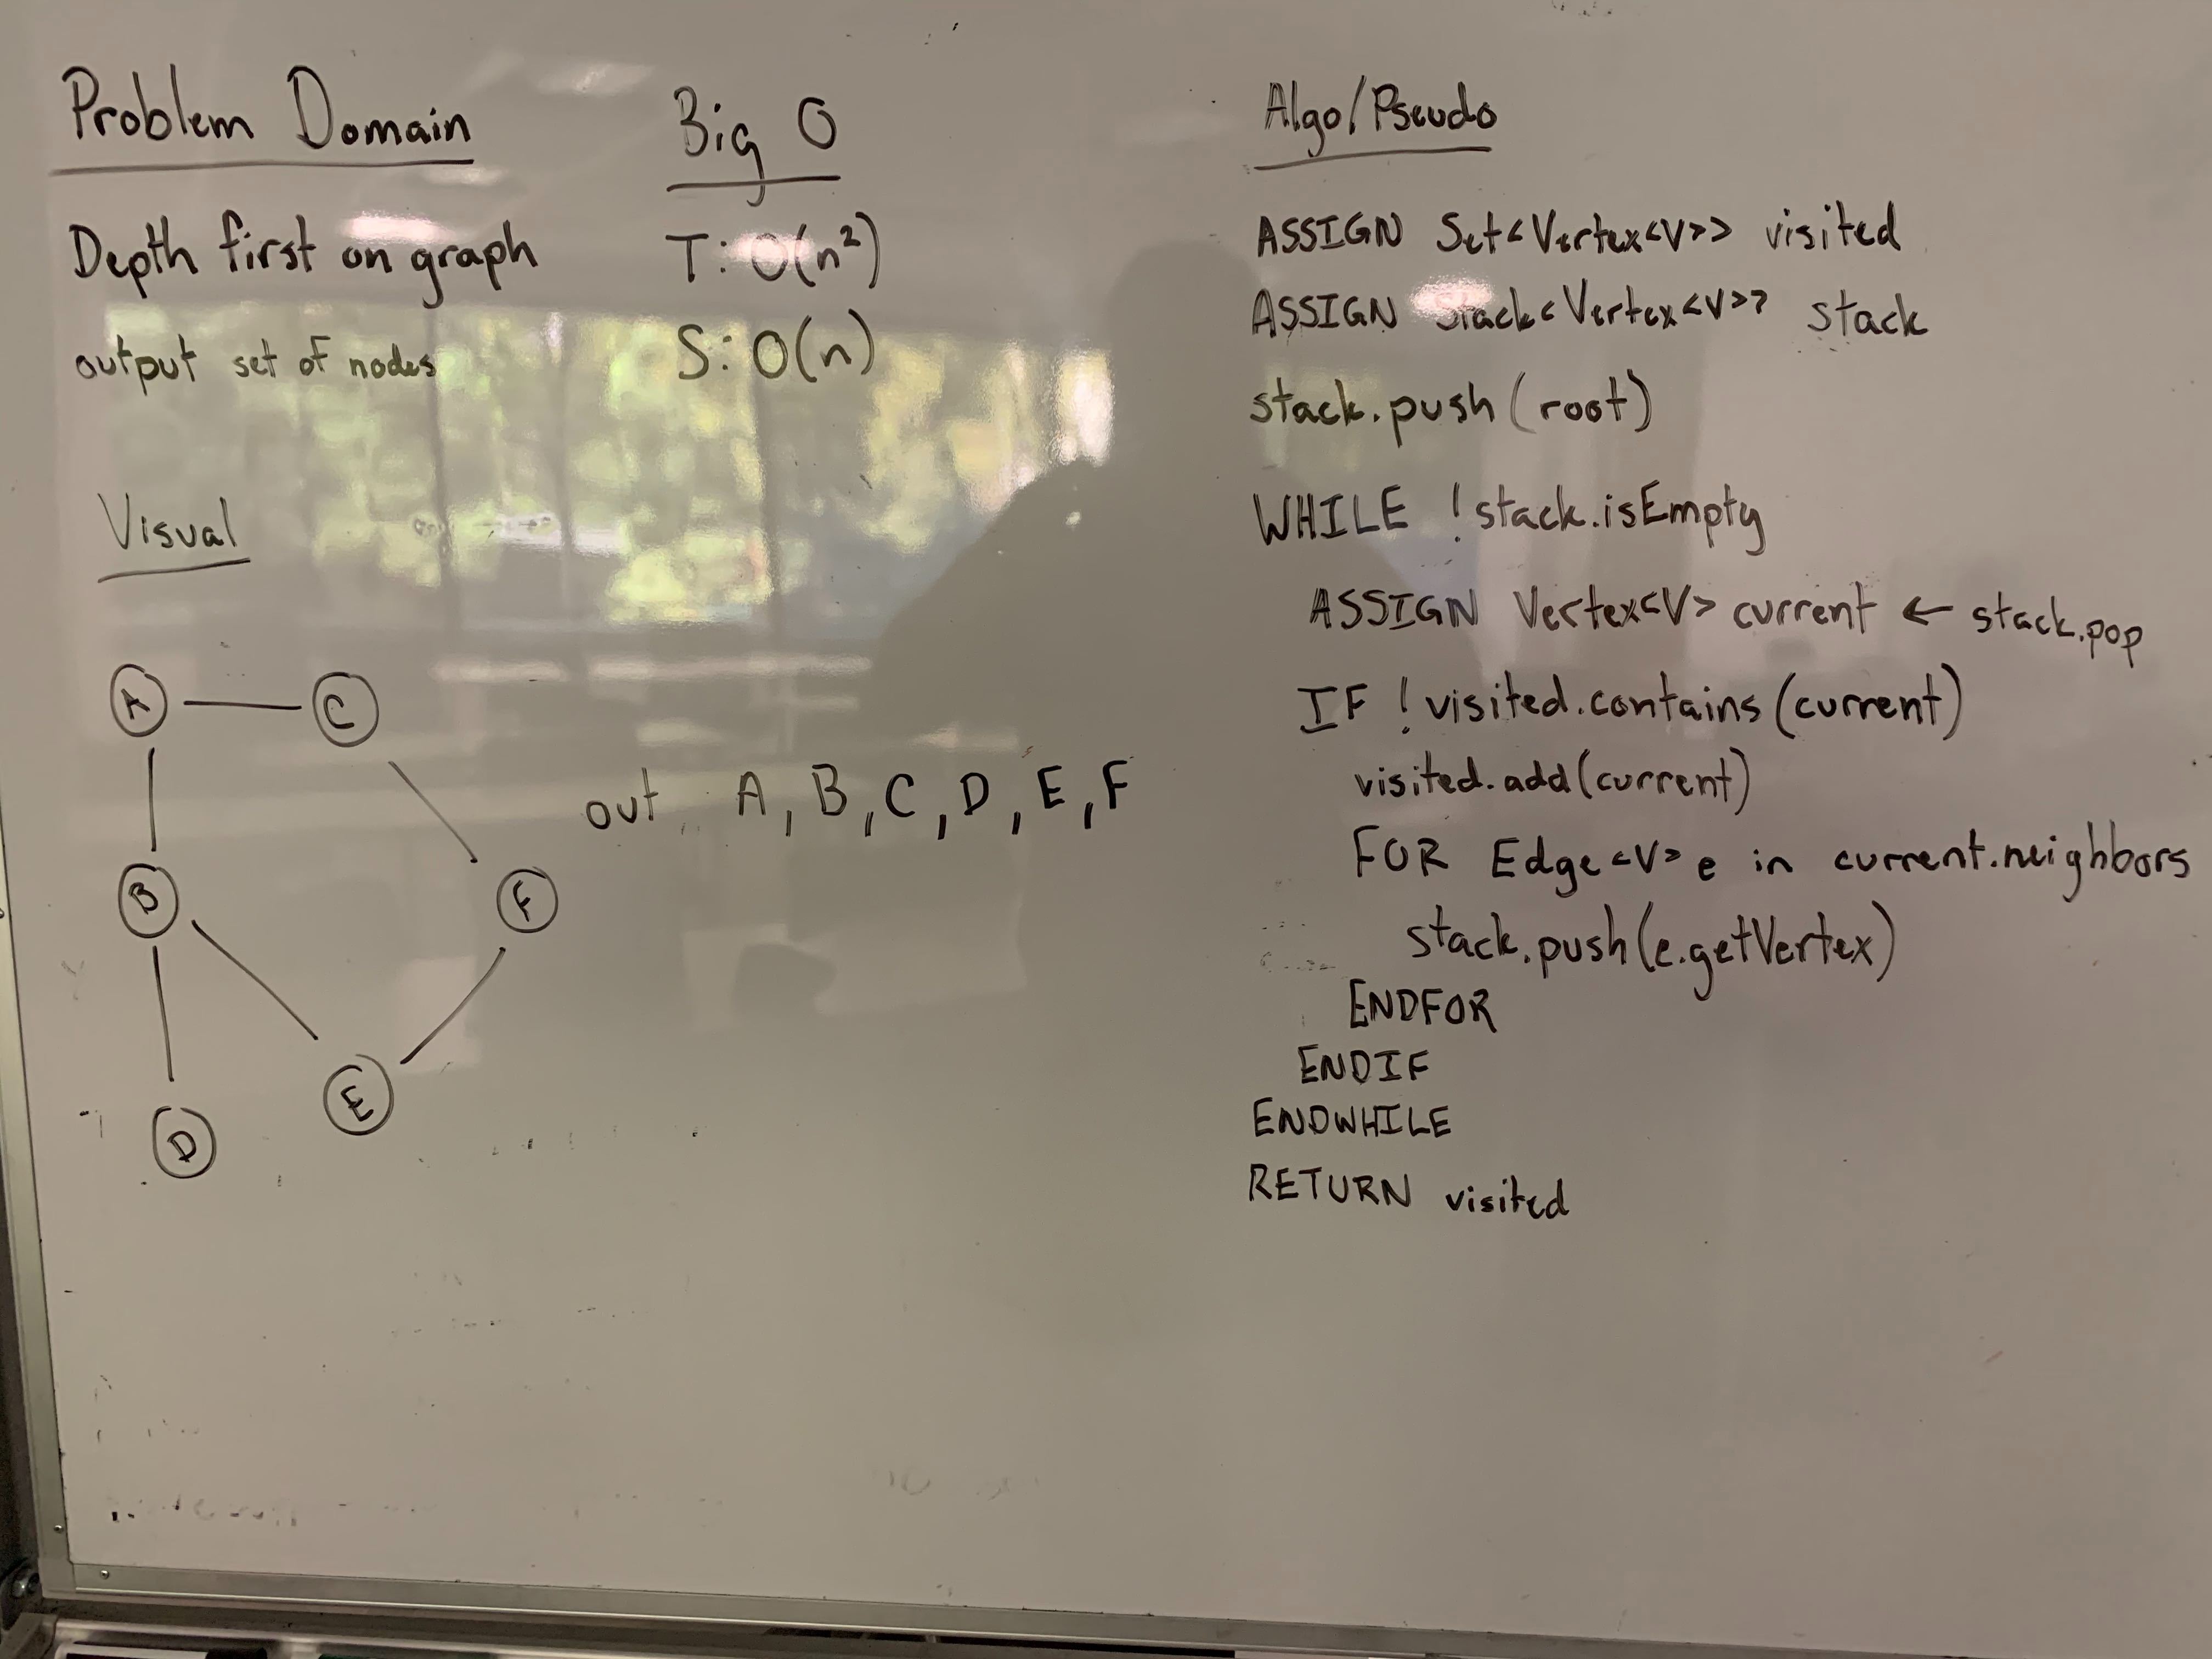 Problem Domain
Depth first on graph
output set of nodes
Big O
T: O(n²)
S: O(n)
Visual
A
C
B
F
D
E
out A, B, C, D, E, F
Algo/Pseudo
ASSIGN Set<Vertex<V>> visited
ASSIGN Stack<Vertex<V>> stack
stack.push(root)
WHILE !stack.isEmpty
ASSIGN Vertex<V> current ← stack.pop
IF !visited.contains(current)
visited.add(current)
FOR Edge<V> e in current.neighbors
stack.push(e.getVertex)
ENDFOR
ENDIF
ENDWHILE
RETURN visited